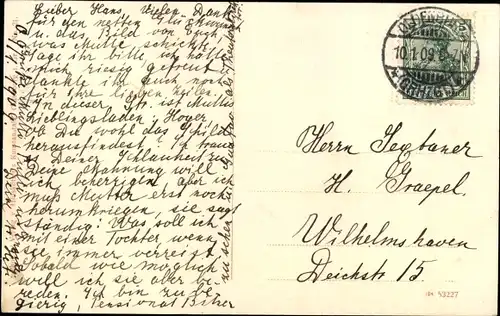 Lieber Hans, Vielen Dank
für den netten Glückwunsch
u. das Bild von Euch,
was Mutti schickte.
Sage ihr bitte, ich hätte
mich riesig gefreut u.
dankte ihr auch noch
für ihre lieben Zeilen.
In dieser Str. ist Muttis
Lieblingsladen: Hoyer.
Ob Du wohl das Schild
herausfindest? Ich traue
es Deiner Schlauheit zu.
Deine Mahnung will
ich beherzigen, aber ich
muß Mutter erst noch
herumkriegen, sie sagt
ständig: Was soll ich
mit einer Tochter, wenn
sie immer verreist.
Sobald wie möglich
will ich sie aber be-
reden. Ich bin zu be-
gierig, Pensionat
zu sehen
OLDENBURG
10.1.09
(GRHZGT.)
Herrn
H. Graepel.
Wilhelmshaven
Deichstr 15.
53227